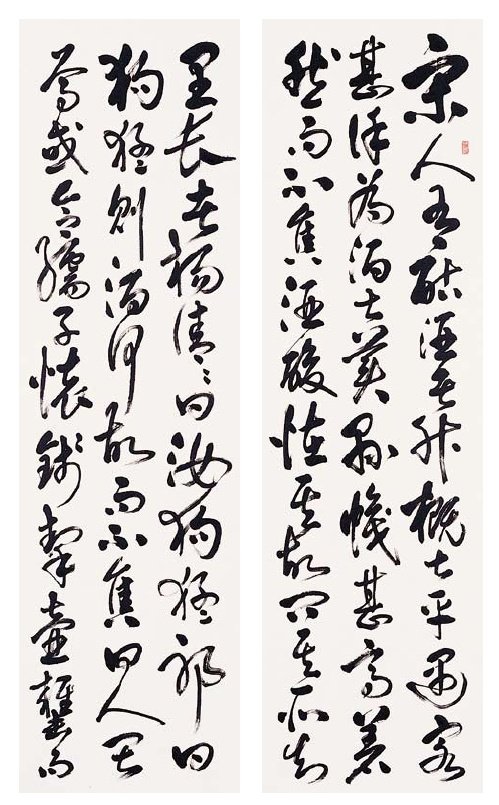 宋人有酤酒者升概甚平遇客
甚謹為酒甚美縣幟甚高著
然而不售酒酸怪其故問其所知
里長者楊倩々曰汝狗猛耶曰
狗猛則酒何故而不售曰人畏
焉或令孺子懷錢挈壺甕而